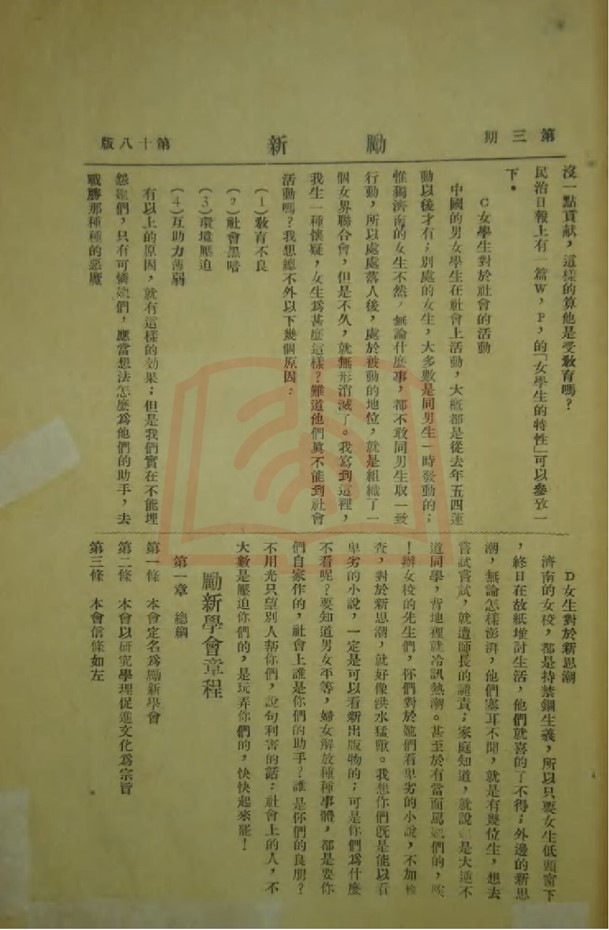 第三期
勵新
第十八版
沒一點貢獻，這樣的算他是受敎育嗎？
民治日報上有一篇W，P，的「女學生的特性」可以參攷一
下。
C女學生對於社會的活動
中國的男女學生在社會上活動，大概都是從去年五四運
動以後才有；別處的女生，大多數是同男生一時發動的；
惟獨濟南的女生不然，無論什麼事，都不敢同男生取一致
行動，所以處處落人後，處於被動的地位，就是組織了一
個女界聯合會，但是不久，就無形消滅了。我寫到這裡，
我生一種懷疑，女生爲甚麼這樣？難道他們眞不能到社會
活動嗎？我想總不外以下幾個原因：
(1)敎育不良
(2)社會黑暗
(3)環境壓迫
(4)互助力薄弱
有以上的原因，就有這樣的效果；但是我們實在不能埋
怨她們，只有可憐她們，應當想法怎麼爲他們的助手，去
戰勝那種種的惡魔
D女生對於新思潮
濟南的女校，都是持禁錮主義，所以只要女生低頭窗下
，終日在故紙堆討生活，他們就喜的了不得；外邊的新思
潮，無論怎樣澎湃，他們塞耳不聞，就是有幾位生，想去
嘗試嘗試，就遭師長的譴責；家庭知道，就說是大逆不
道同學，背地裡就冷訊熱潮。甚至於有當面罵她們的，唉
！辦女校的先生們，你們對於她們看卑劣的小說，不加檢
查，對於新思潮，就好像洪水猛獸。我想你們旣是能以看
卑劣的小說，一定是可以看新出版物的；可是你們爲什麼
不看呢？要知道男女平等，婦女解放種種事體，都是要你
們自家作的，社會上誰是你們的助手？誰是你們的良朋？
不用光只望別人幫你們，說句利害的話：社會上的人，不
大數是壓迫你們的，是玩弄你們的，快快起來罷！
勵新學會章程
第一章　總綱
第一條　本會定名爲勵新學會
第二條　本會以研究學理促進文化爲宗旨
第三條　本會信條如左